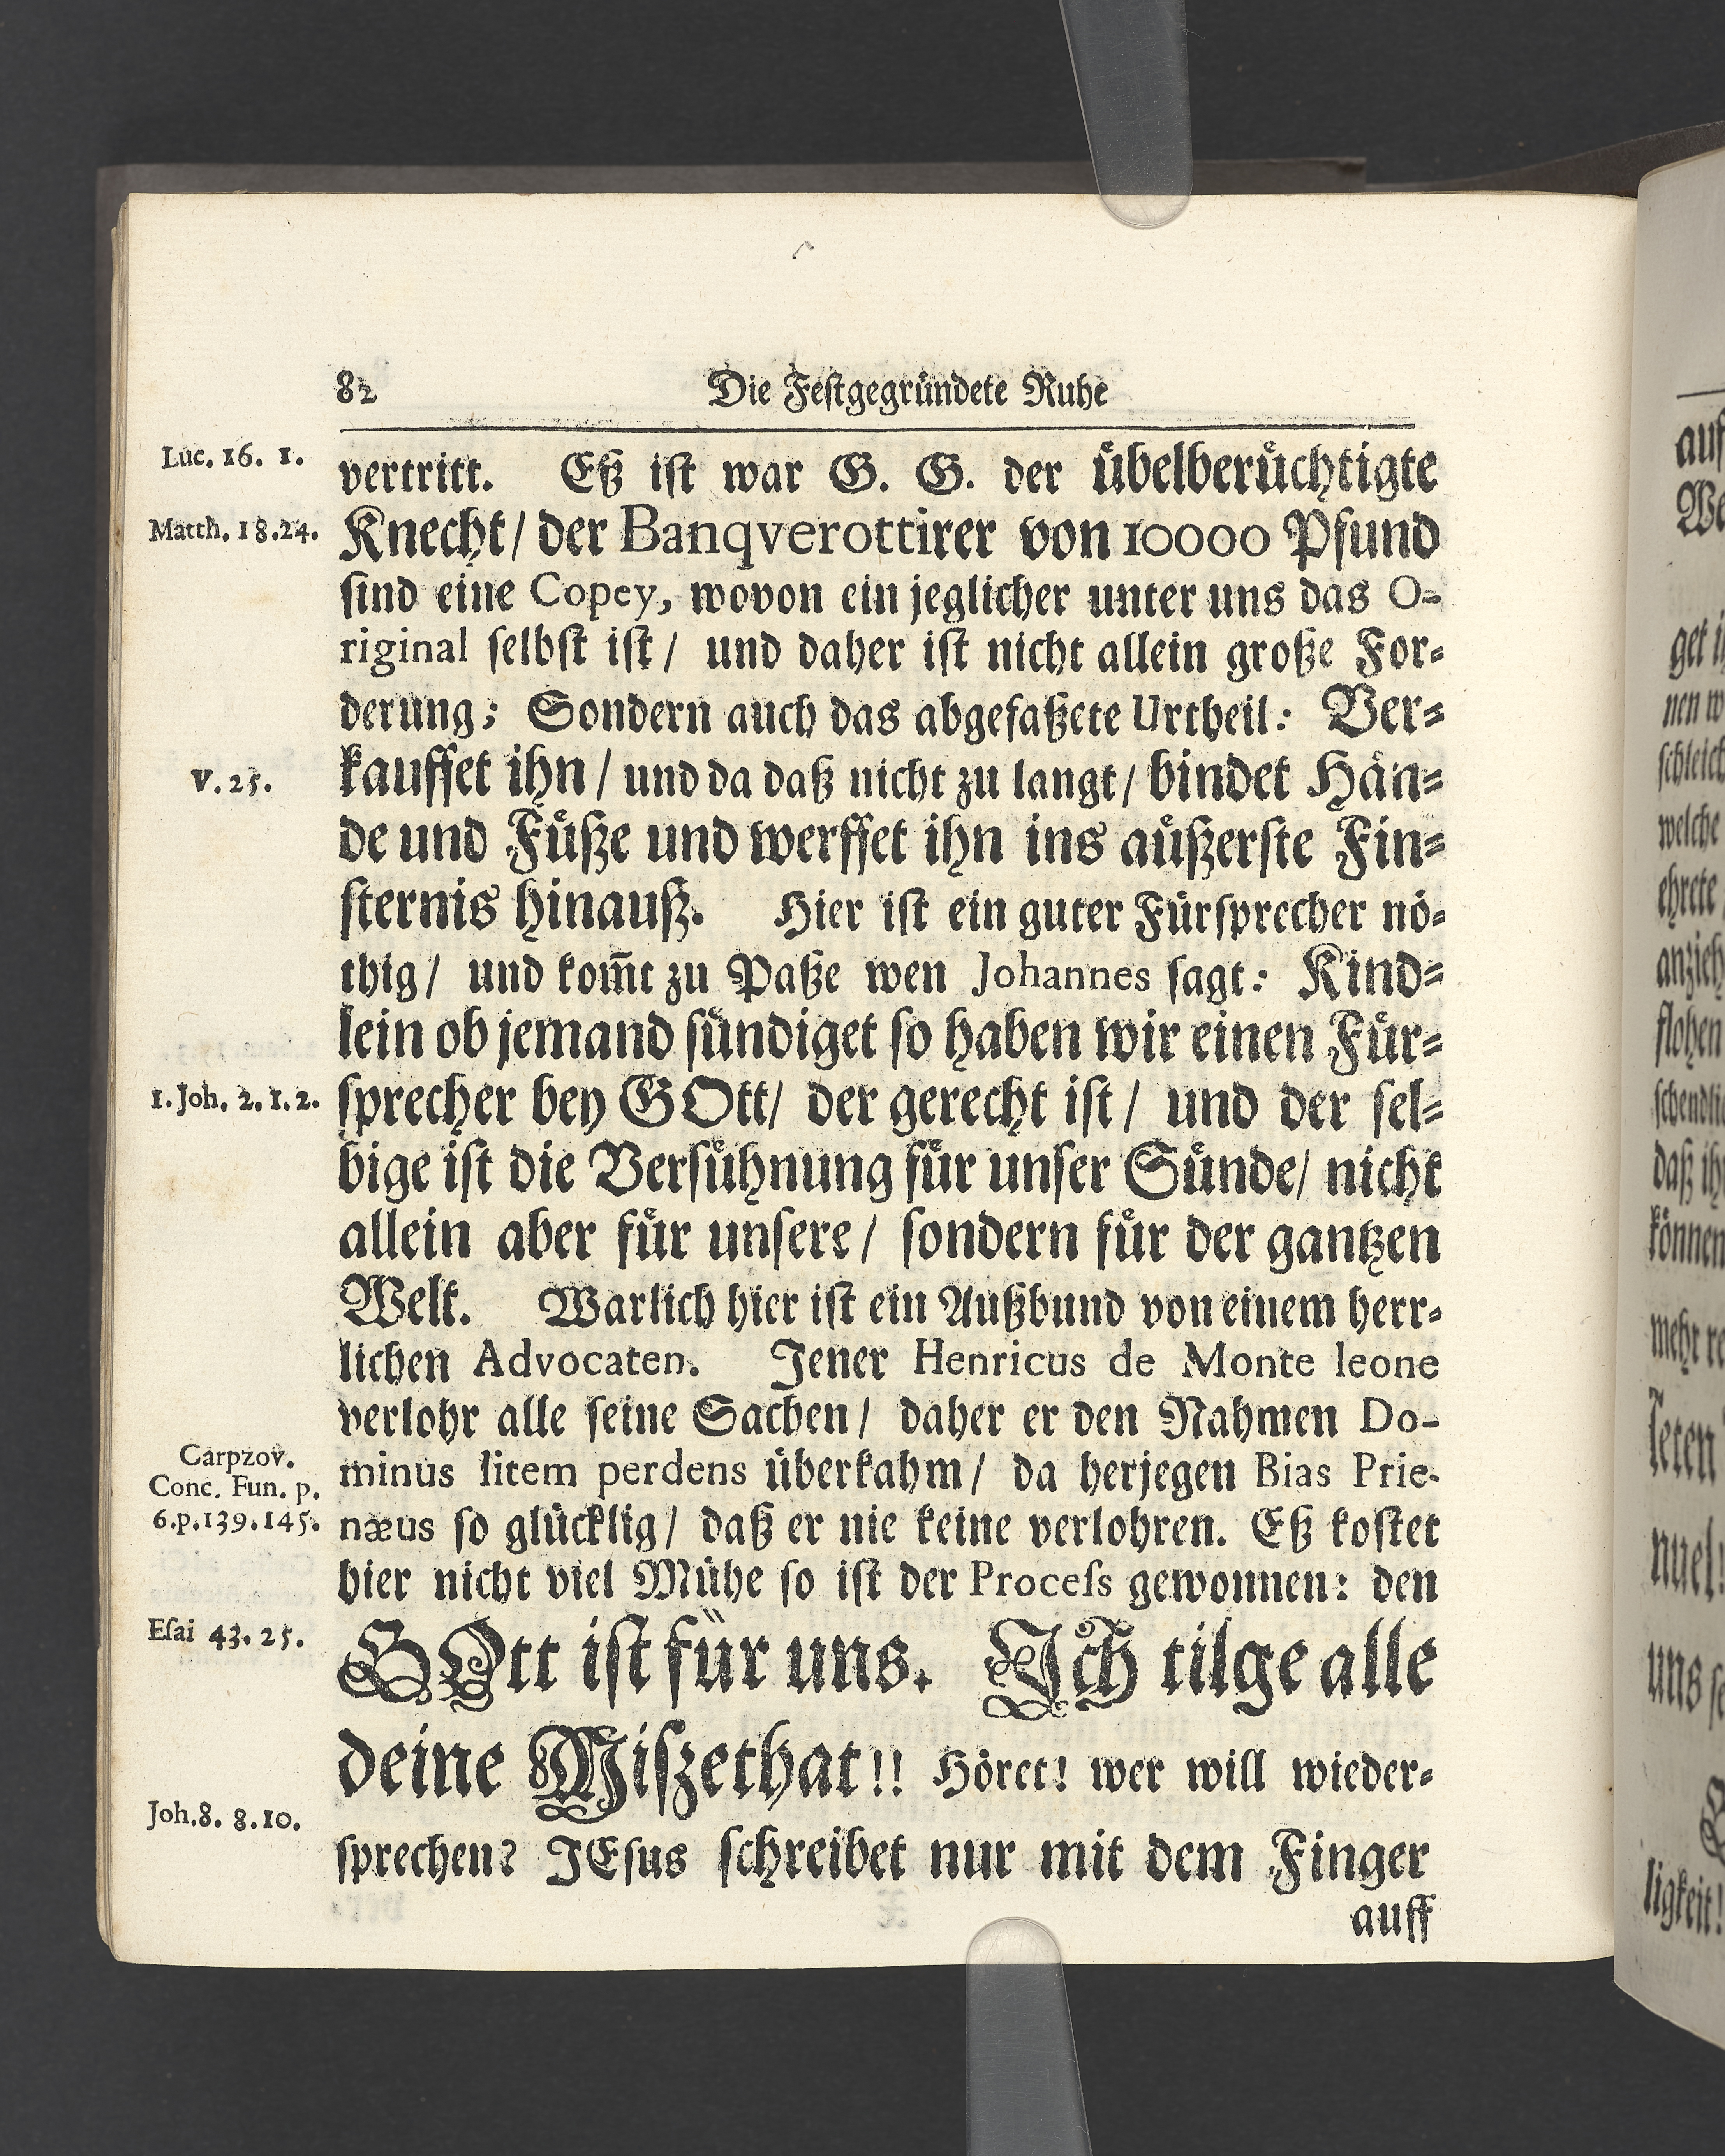 82 Die Festgegründete Ruhe
Luc. 16. 1.
vertritt. Eß ist war G. G. der übelberüchtigte
Matth. 18.24.
Knecht/ der Banqverottirer von 10000 Pfund
sind eine Copey, wovon ein jeglicher unter uns das O-
riginal selbst ist/ und daher ist nicht allein große For-
derung; Sondern auch das abgefaßete Urtheil: Ver-
V. 25.
kauffet ihn/ und da daß nicht zu langt/ bindet Hän-
de und Füße und werffet ihn ins aüßerste Fin-
sternis hinauß. Hier ist ein guter Fürsprecher nö-
thig/ und kom̄t zu Paße wen Johannes sagt: Kind-
lein ob jemand sündiget so haben wir einen Für-
1. Joh. 2. 1. 2.
sprecher bey GOtt/ der gerecht ist/ und der sel-
bige ist die Versühnung für unser Sünde/ nicht
allein aber für unsere/ sondern für der gantzen
Welt. Warlich hier ist ein Außbund von einem herr-
lichen Advocaten. Jener Henricus de Monte leone
verlohr alle seine Sachen/ daher er den Nahmen Do-
Carpzov.
Conc. Fun. p.
6.p.139.145.
minus litem perdens überkahm/ da herjegen Bias Prie-
næus so glücklig/ daß er nie keine verlohren. Eß kostet
hier nicht viel Mühe so ist der Process gewonnen: den
Esai 43. 25.
GOtt ist für uns. Ich tilge alle
deine Miszethat!! Höret! wer will wieder-
Joh.8. 8.10.
sprechen? JEsus schreibet nur mit dem Finger
auff